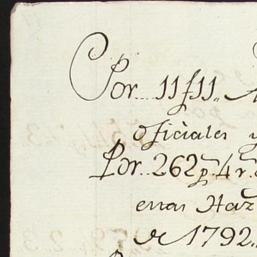 Por 11 f 11..
oficiales y
Por 262 p. 4 r.
enas Haz
de 1792..